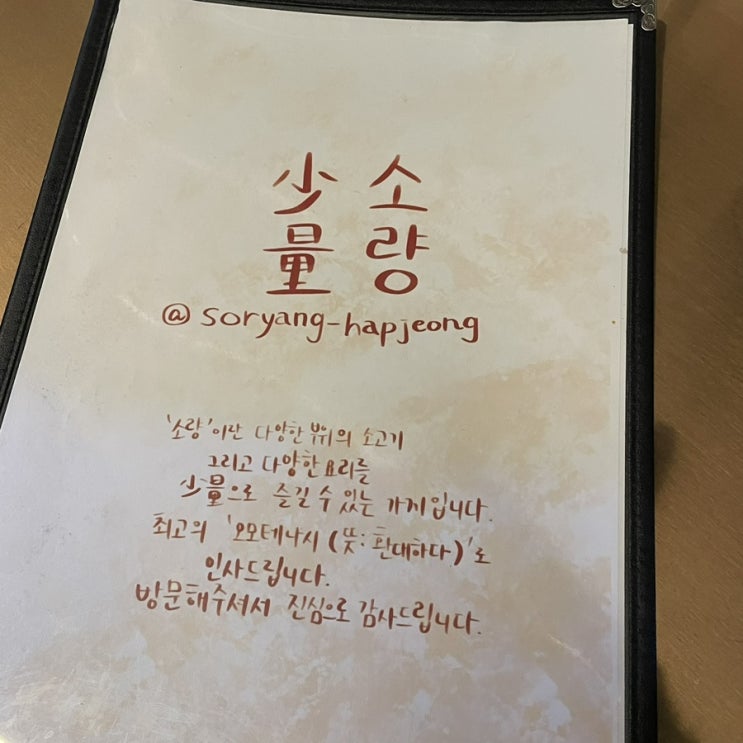 少 소
量 량
@ soryang-hapjeong
'소량'이란 다양한 부위의 소고기
그리고 다양한 요리를
少量으로 즐길 수 있는 가게입니다.
최고의 '오모테나시 (뜻: 환대하다)'로
인사드립니다.
방문해주셔서 진심으로 감사드립니다.